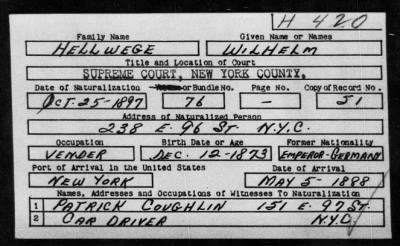 H 420
Family Name Given Name or Names
HELLWEGE WILHELM
Title and Location of Court
SUPREME COURT, NEW YORK COUNTY,
Date of Naturalization or Bundle No. Page No. Copy of Record No.
OCT. 25-1897 76 — 51
Address of Naturalized Person
238 E. 96 ST N.Y.C.
Occupation Birth Date or Age Former Nationality
VENDER DEC. 12-1873 EMPEROR-GERMANY
Port of Arrival in the United States Date of Arrival
NEW YORK MAY 5-1888
Names, Addresses and Occupations of Witnesses To Naturalization
1 PATRICK COUGHLIN 151 E. 97 ST.
2 CAR DRIVER N.Y.C.